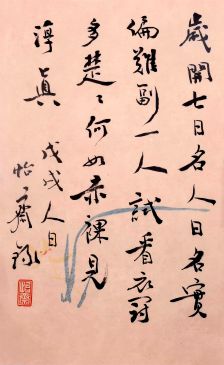 歲開七日名人日名實
偏難副一人試看衣冠
多楚〻何如赤裸見
淳真
戊戌人日
怡齋錄